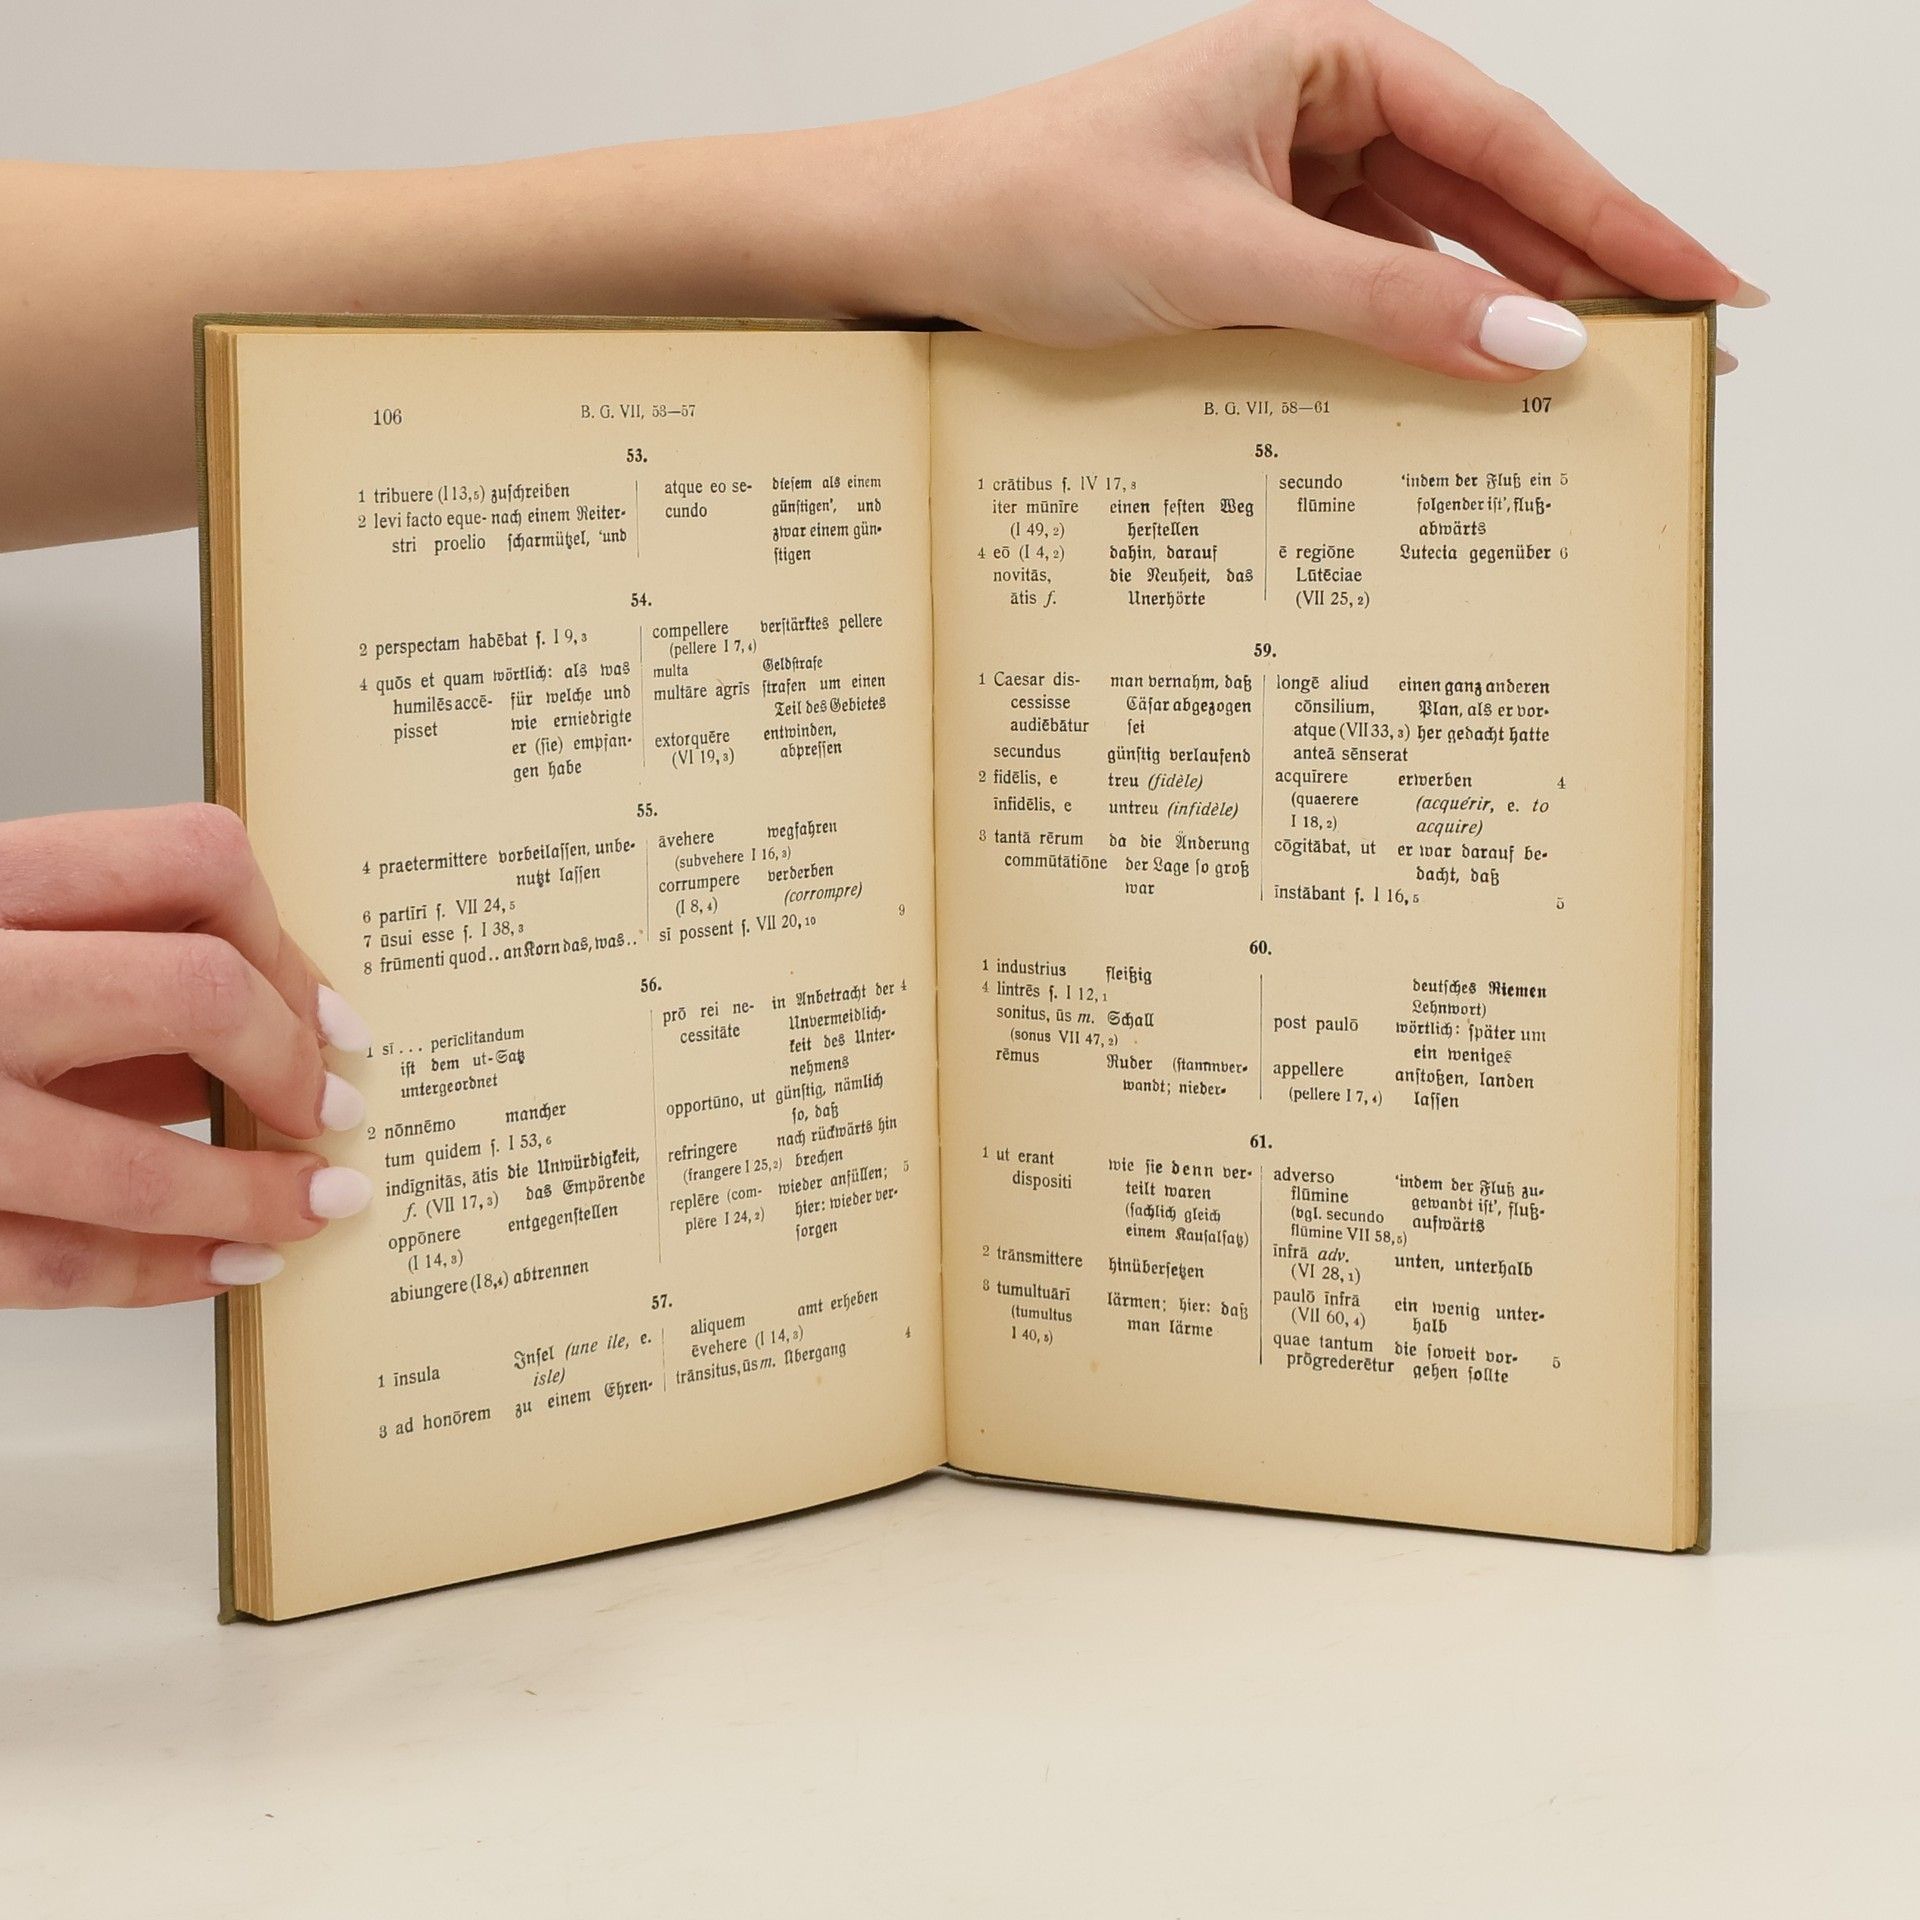 106
B. G. VII, 53—57
53.
1 tribuere (I 13,5) zuſchreiben
2 levi facto eque- nach einem Reiter-
stri proelio ſcharmützel, 'und
atque eo se- dieſem als einem
cundo günſtigen', und
zwar einem gün-
ſtigen
54.
2 perspectam habēbat ſ. I 9, 3
4 quōs et quam wörtlich: als was
humilēs accē- für welche und
pisset wie erniedrigte
er (ſie) empfan-
gen habe
compellere verſtärktes pellere
(pellere I 7, 4)
multa Geldſtrafe
multāre agrīs ſtrafen um einen
Teil des Gebietes
extorquēre entwinden,
(VI 19, 3) abpreſſen
55.
4 praetermittere vorbeilaſſen, unbe-
nutzt laſſen
6 partīrī ſ. VII 24, 5
7 ūsui esse ſ. I 38, 3
8 frūmenti quod.. an Korn das, was..
āvehere wegfahren
(subvehere I 16, 3)
corrumpere verderben
(I 8, 4) (corrompre)
sī possent ſ. VII 20, 10 9
56.
1 sī ... perīclitandum
iſt dem ut-Satz
untergeordnet
2 nōnnēmo mancher
tum quidem ſ. I 53, 6
indīgnitās, ātis die Unwürdigkeit,
f. (VII 17, 3) das Empörende
oppōnere entgegenſtellen
(I 14, 3)
abiungere (I 8,4) abtrennen
prō rei ne- in Anbetracht der 4
cessitāte Unvermeidlich-
keit des Unter-
nehmens
opportūno, ut günſtig, nämlich
ſo, daß
refringere nach rückwärts hin
(frangere I 25, 2) brechen
replēre (com- wieder anfüllen; 5
plēre I 24, 2) hier: wieder ver-
ſorgen
57.
1 īnsula Inſel (une ile, e.
isle)
3 ad honōrem zu einem Ehren-
aliquem amt erheben
ēvehere (I 14, 3)
trānsitus, ūs m. Übergang 4
B. G. VII, 58—61
107
58.
1 crātibus ſ. IV 17, 8
iter mūnīre einen feſten Weg
(I 49, 2) herſtellen
4 eō (I 4, 2) dahin, darauf
novitās, die Neuheit, das
ātis f. Unerhörte
secundo 'indem der Fluß ein 5
flūmine folgender iſt', fluß-
abwärts
ē regiōne Lutecia gegenüber 6
Lūtēciae
(VII 25, 2)
59.
1 Caesar dis- man vernahm, daß
cessisse Cäſar abgezogen
audiēbātur ſei
secundus günſtig verlaufend
2 fidēlis, e treu (fidèle)
īnfidēlis, e untreu (infidèle)
3 tantā rērum da die Änderung
commūtātiōne der Lage ſo groß
war
longē aliud einen ganz anderen
cōnsilium, Plan, als er vor-
atque (VII 33, 3) her gedacht hatte
anteā sēnserat
acquīrere erwerben 4
(quaerere (acquérir, e. to
I 18, 2) acquire)
cōgitābat, ut er war darauf be-
dacht, daß
īnstābant ſ. I 16, 5 5
60.
1 industrius fleißig
4 lintrēs ſ. I 12, 1
sonitus, ūs m. Schall
(sonus VII 47, 2)
rēmus Ruder (ſtammver-
wandt; nieder-
deutſches Riemen
Lehnwort)
post paulō wörtlich: ſpäter um
ein weniges
appellere anſtoßen, landen
(pellere I 7, 4) laſſen
61.
1 ut erant wie ſie denn ver-
dispositi teilt waren
(ſachlich gleich
einem Kauſalſatz)
2 trānsmittere hinüberſetzen
3 tumultuārī lärmen; hier: daß
(tumultus man lärme
I 40, 5)
adverso 'indem der Fluß zu-
flūmine gewandt iſt', fluß-
(vgl. secundo aufwärts
flūmine VII 58, 5)
īnfrā adv. unten, unterhalb
(VI 28, 1)
paulō īnfrā ein wenig unter-
(VII 60, 4) halb
quae tantum die ſoweit vor- 5
prōgrederētur gehen ſollte